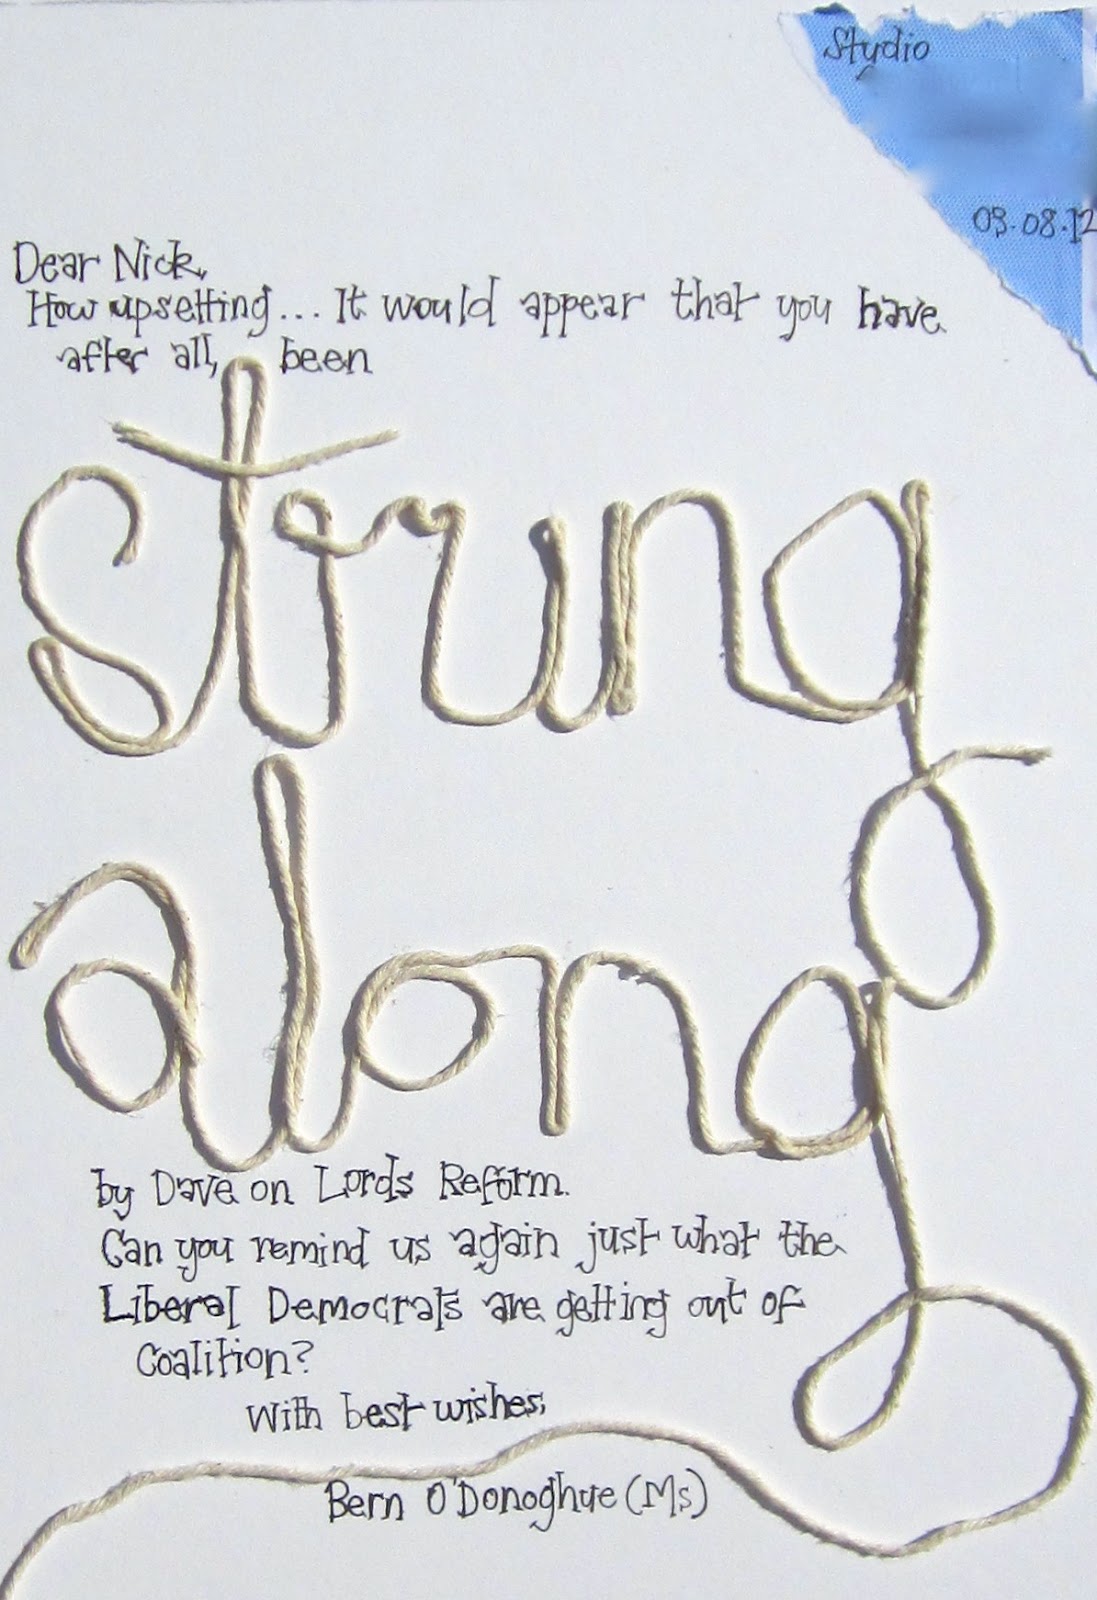 Studio
03.08.12
Dear Nick,
How upsetting... It would appear that you have
after all, been
strung
along
by Dave on Lords Reform.
Can you remind us again just what the
Liberal Democrats are getting out of
Coalition?
With best wishes,
Bern O'Donoghue (Ms)